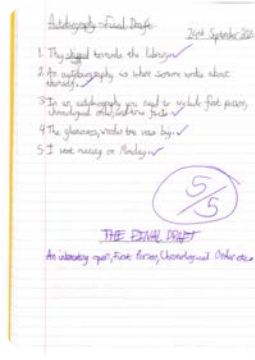 Autobiography - Final Draft
24th September 202
1. They towards the library.
2. An autobiography is where someone writes about
3. In an autobiography you need to include first person,
chronological order, facts.
4. The under the
5. I went on Monday.
5/5
THE FINAL DRAFT
An interesting open, First Person, Chronological Order etc.